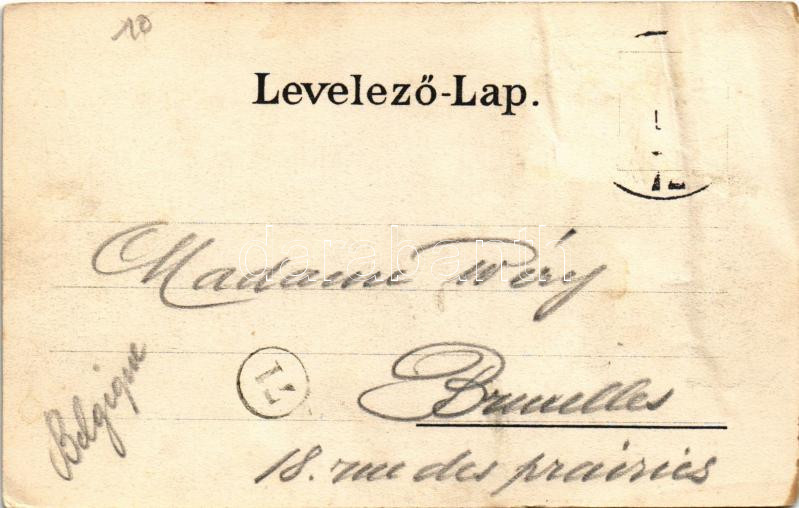 10
Levelező-Lap.
Madame Wéry
Bruxelles
18. rue des prairies
Belgique
darabanth